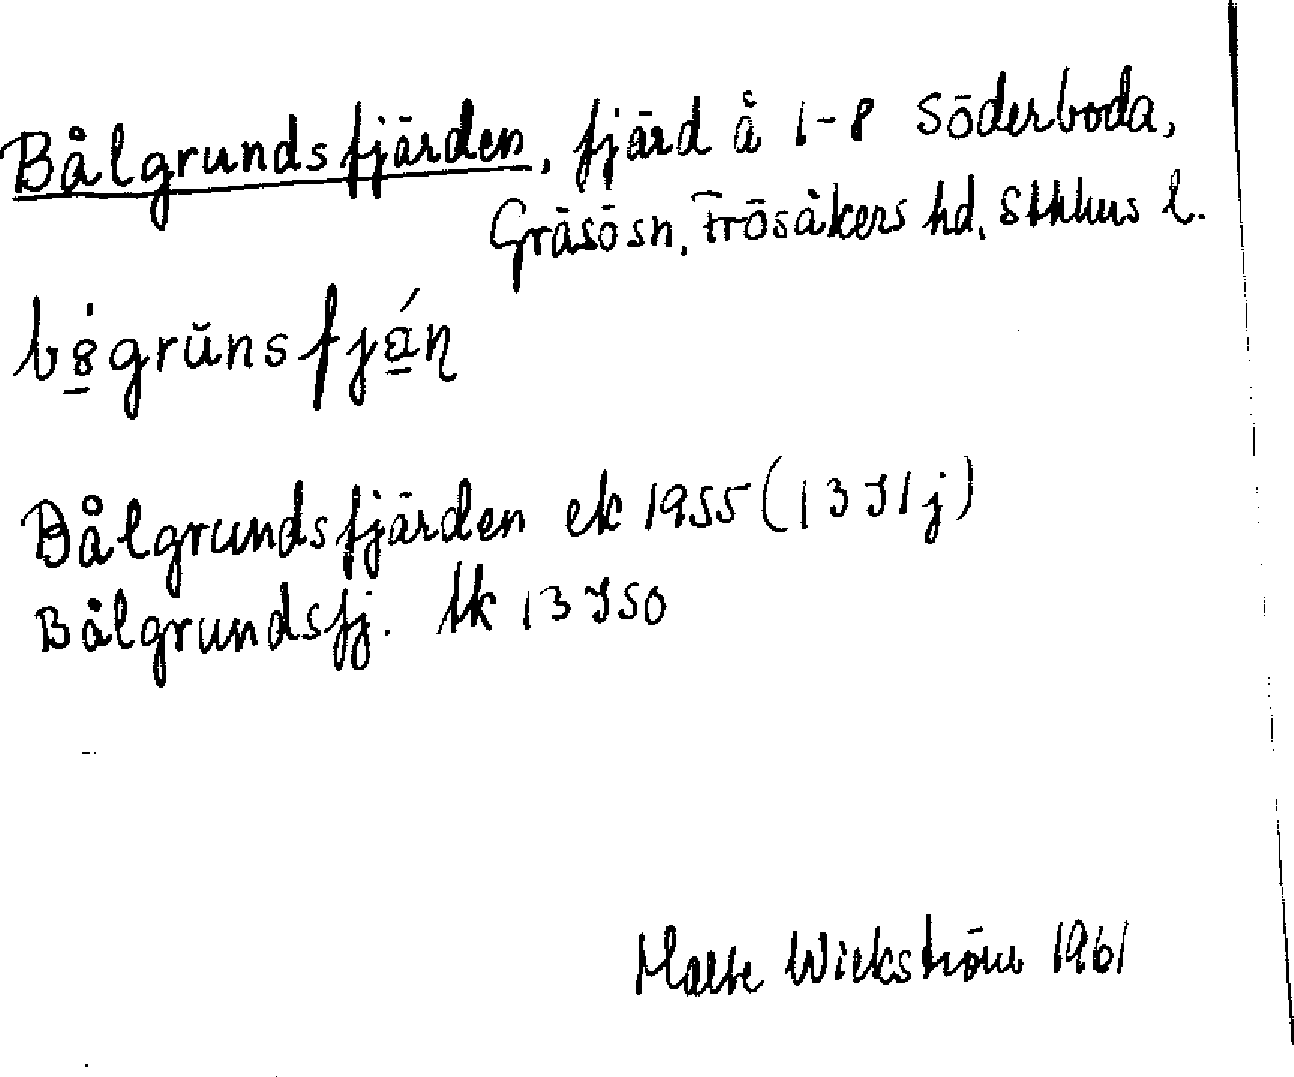 Bålgrundsfjärden, fjärd å 1-8 Söderboda,
Gräsö sn, Frösåkers hd, Sthlms l.
bȣ̱́grŭnsfjá̱ṇ
Bålgrundsfjärden ek 1955 (13 J 1 j)
Bålgrundsfj. tk 13 J SO
Malte Wickström 1961